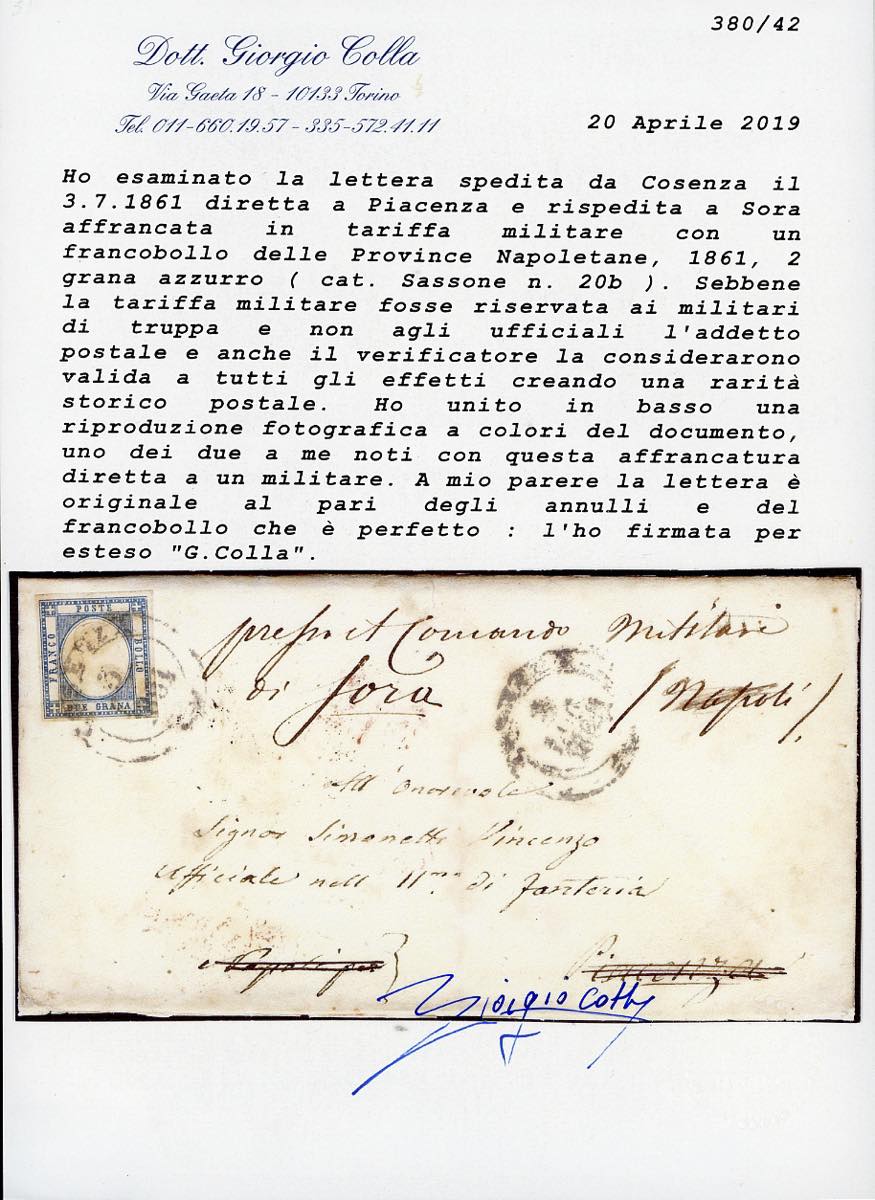 380/42
Dott. Giorgio Colla
Via Gaeta 18 - 10133 Torino
Tel. 011-660.19.57 - 335-572.41.11
20 Aprile 2019
Ho esaminato la lettera spedita da Cosenza il
3.7.1861 diretta a Piacenza e rispedita a Sora
affrancata in tariffa militare con un
francobollo delle Province Napoletane, 1861, 2
grana azzurro ( cat. Sassone n. 20b ). Sebbene
la tariffa militare fosse riservata ai militari
di truppa e non agli ufficiali l'addetto
postale e anche il verificatore la considerarono
valida a tutti gli effetti creando una rarità
storico postale. Ho unito in basso una
riproduzione fotografica a colori del documento,
uno dei due a me noti con questa affrancatura
diretta a un militare. A mio parere la lettera è
originale al pari degli annulli e del
francobollo che è perfetto : l'ho firmata per
esteso "G.Colla".
FRANCO
POSTE
BOLLO
DUE GRANA
presso il Comando Militare
di Sora
(Napoli)
All' Onorevole
Signor Simonetti Vincenzo
Ufficiale nell 11mo di fanteria
Piacenza
Giorgio Colla